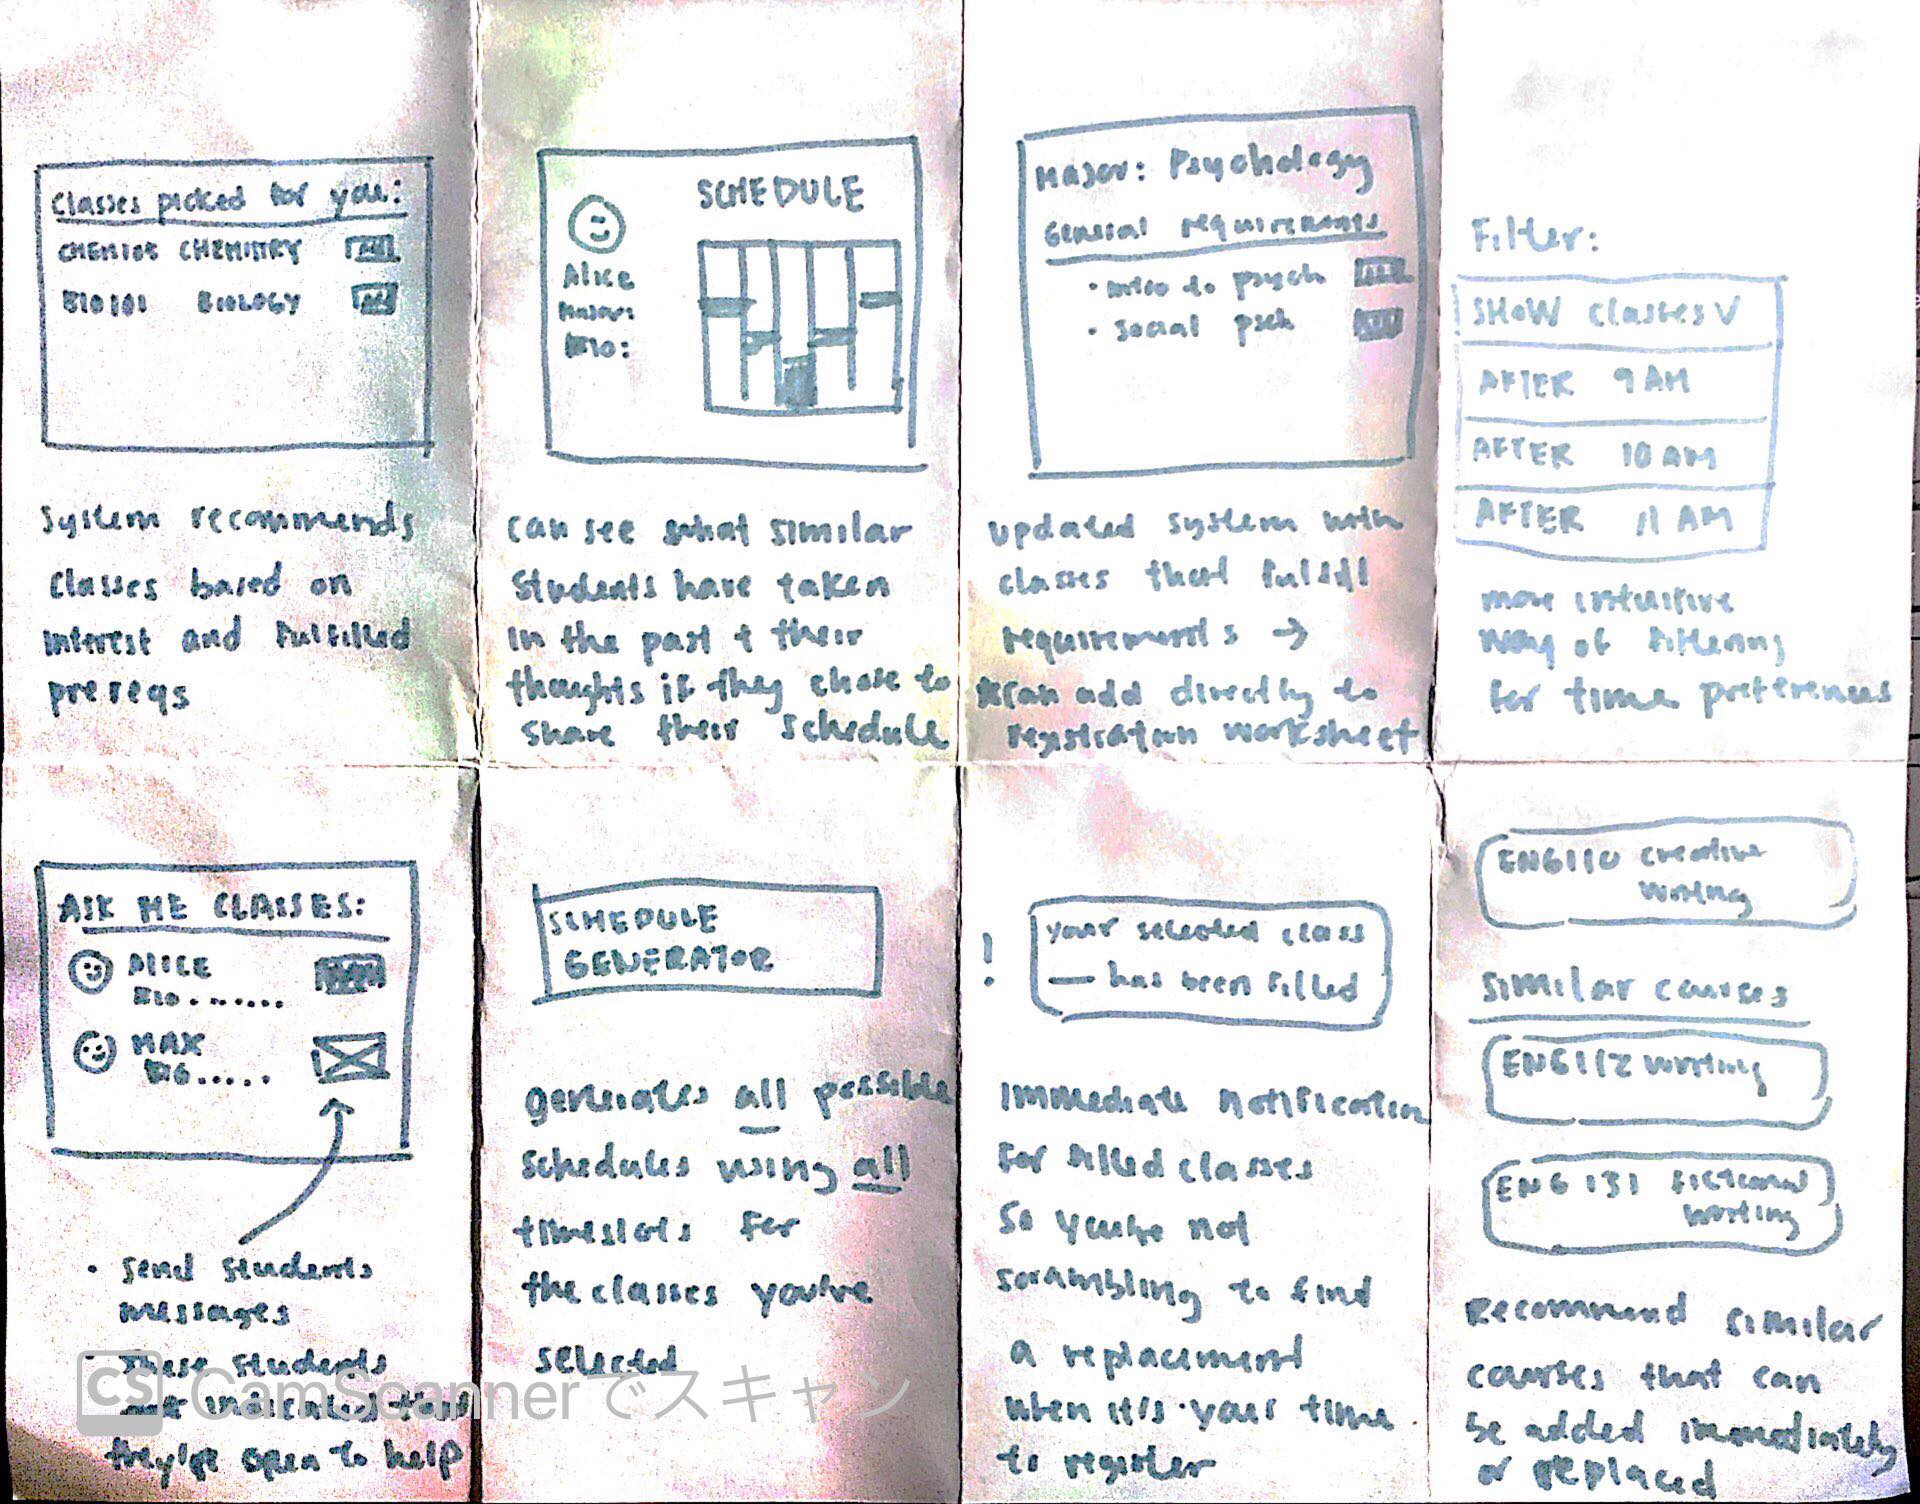 Classes picked for you:
CHEM101 CHEMISTRY
BIO101 BIOLOGY
System recommends
classes based on
interest and fulfilled
prereqs
SCHEDULE
Alice
Major:
Bio:
can see what similar
students have taken
in the past + their
thoughts if they chose to
share their schedule
Major: Psychology
General requirements
• intro to psych
• social psch
updated system with
classes that fulfill
requirements →
can add directly to
registration worksheet
Filter:
SHOW classes V
AFTER 9 AM
AFTER 10 AM
AFTER 11 AM
more intuitive
way of filtering
for time preferences
ASK ME CLASSES:
ALICE
BIO.......
MAX
BIO.....
• send students
messages
• These students
indicated that
they're open to help
SCHEDULE
GENERATOR
generates all possible
schedules using all
timeslots for
the classes you've
selected
! your selected class
— has been filled
immediate notification
for filled classes
so you're not
scrambling to find
a replacement
when it's your time
to register
ENG110 creative
writing
similar courses
ENG112 writing
ENG 131 fictional
writing
Recommend similar
courses that can
be added immediately
or replaced
CS CamScannerでスキャン